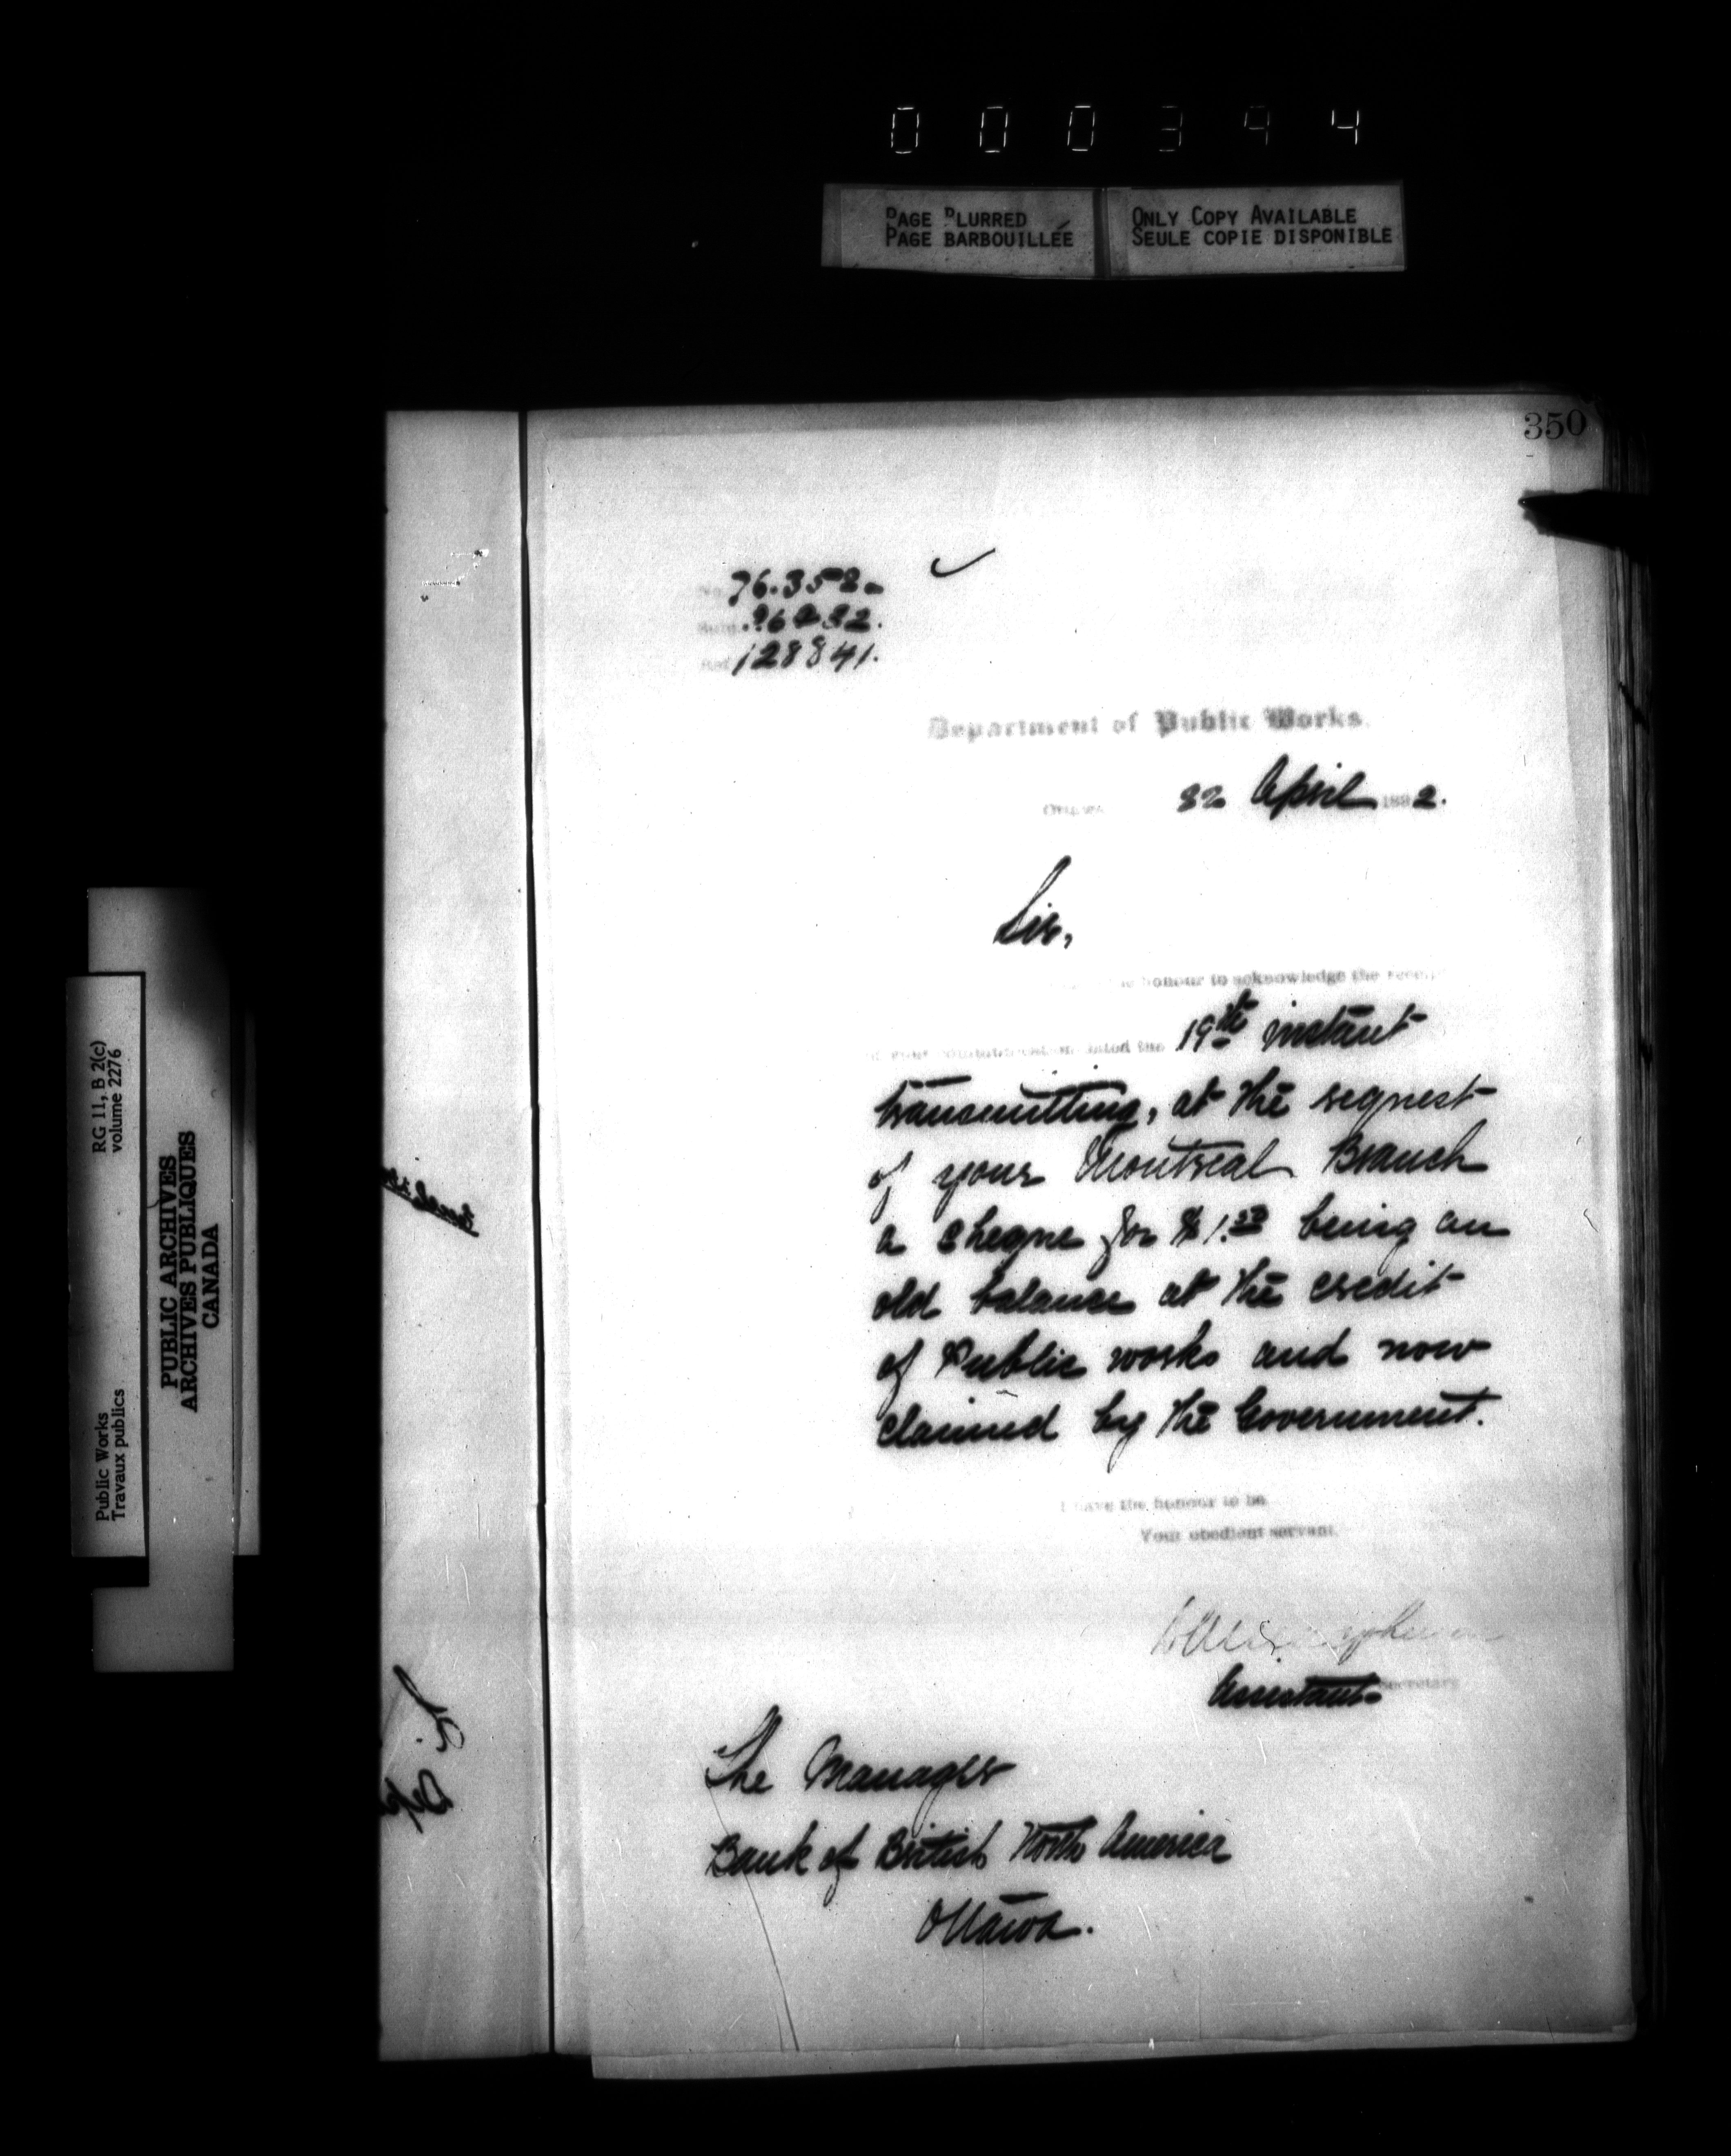 000394
PAGE BLURRED
PAGE BARBOUILLÉE
ONLY COPY AVAILABLE
SEULE COPIE DISPONIBLE
350
No. 76.352.
128841.
Department of Public Works.
Ottawa 22 April 1892.
Sir,
the honour to acknowledge the receipt
of your communication dated the 19th instant
transmitting, at the request
of your Montreal Branch
a cheque for $1. being an
old balance at the credit
of Public works and now
claimed by the Government.
I have the honour to be
Your obedient servant,
Assistant Secretary
The Manager
Bank of British North America
Ottawa.
RG 11, B 2(c)
volume 2276
Public Works
Travaux publics
PUBLIC ARCHIVES
ARCHIVES PUBLIQUES
CANADA